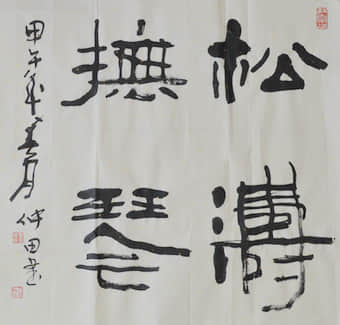 松濤
撫琴
甲午年春月仲田書